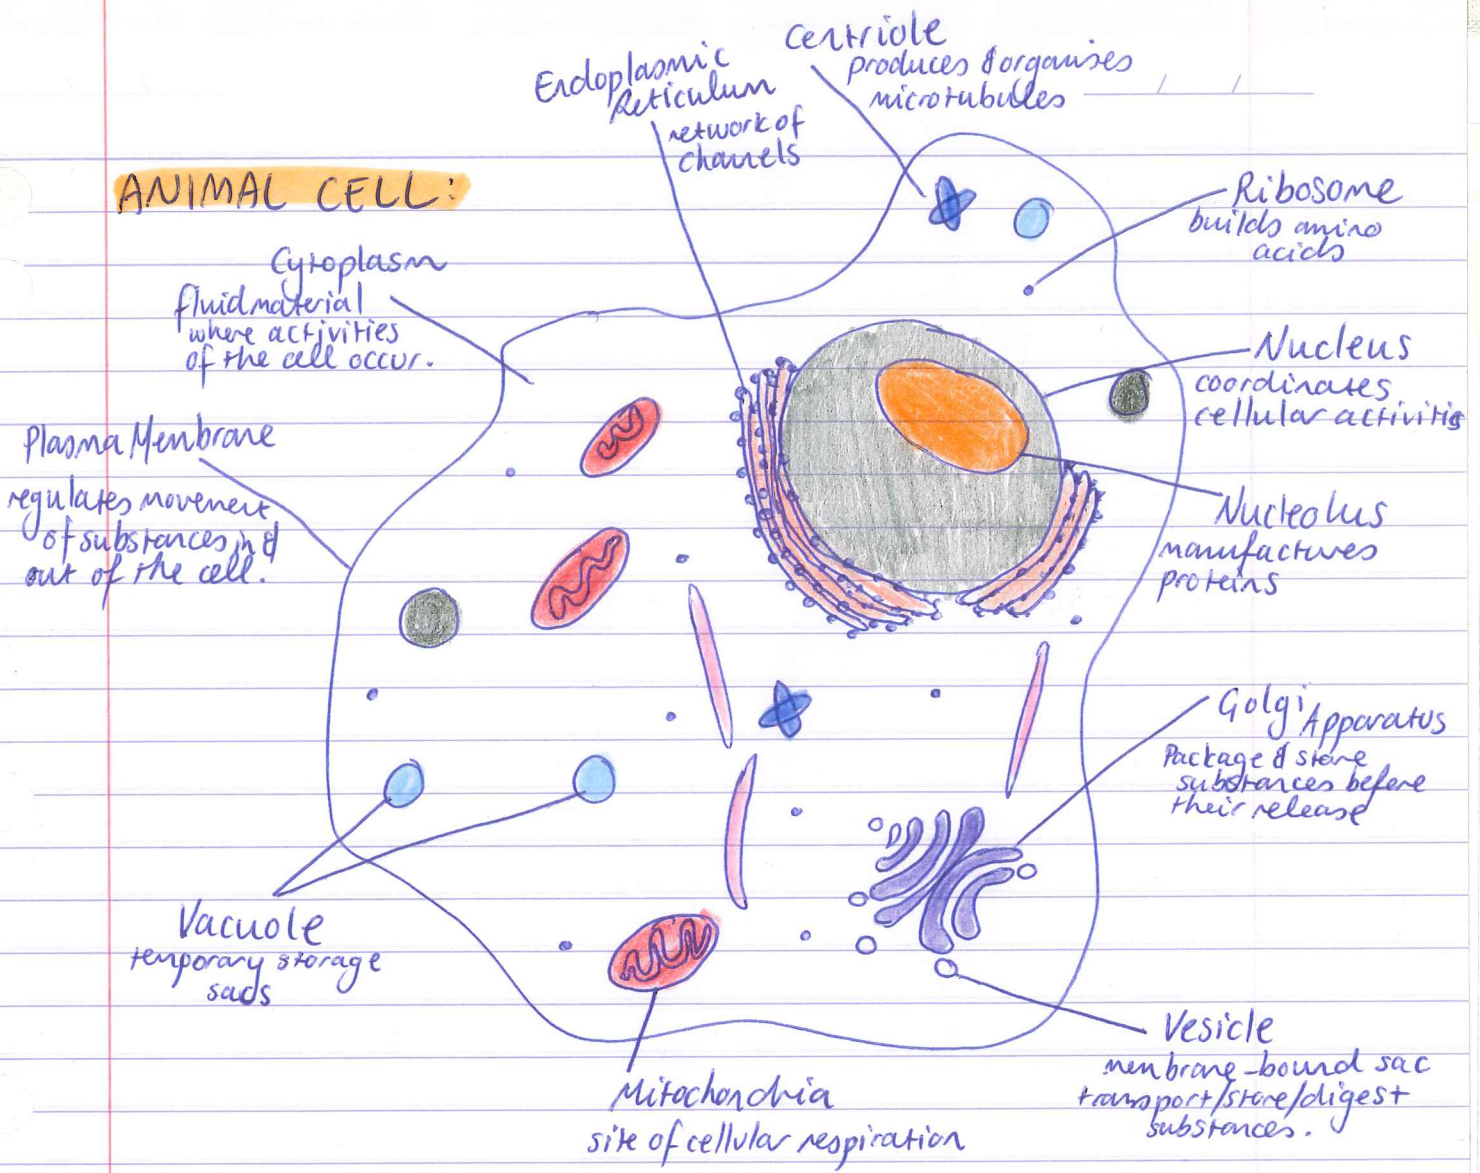 ANIMAL CELL:
Endoplasmic
Reticulum
network of
channels
Centriole
produces & organises
microtubules
Ribosome
builds amino
acids
Cytoplasm
fluid material
where activities
of the cell occur.
Nucleus
coordinates
cellular activities
Plasma Membrane
regulates movement
of substances in &
out of the cell.
Nucleolus
manufactures
proteins
Golgi Apparatus
Package & store
substances before
their release
Vacuole
temporary storage
sacs
Vesicle
membrane-bound sac
transport/store/digest
substances.
Mitochondria
site of cellular respiration